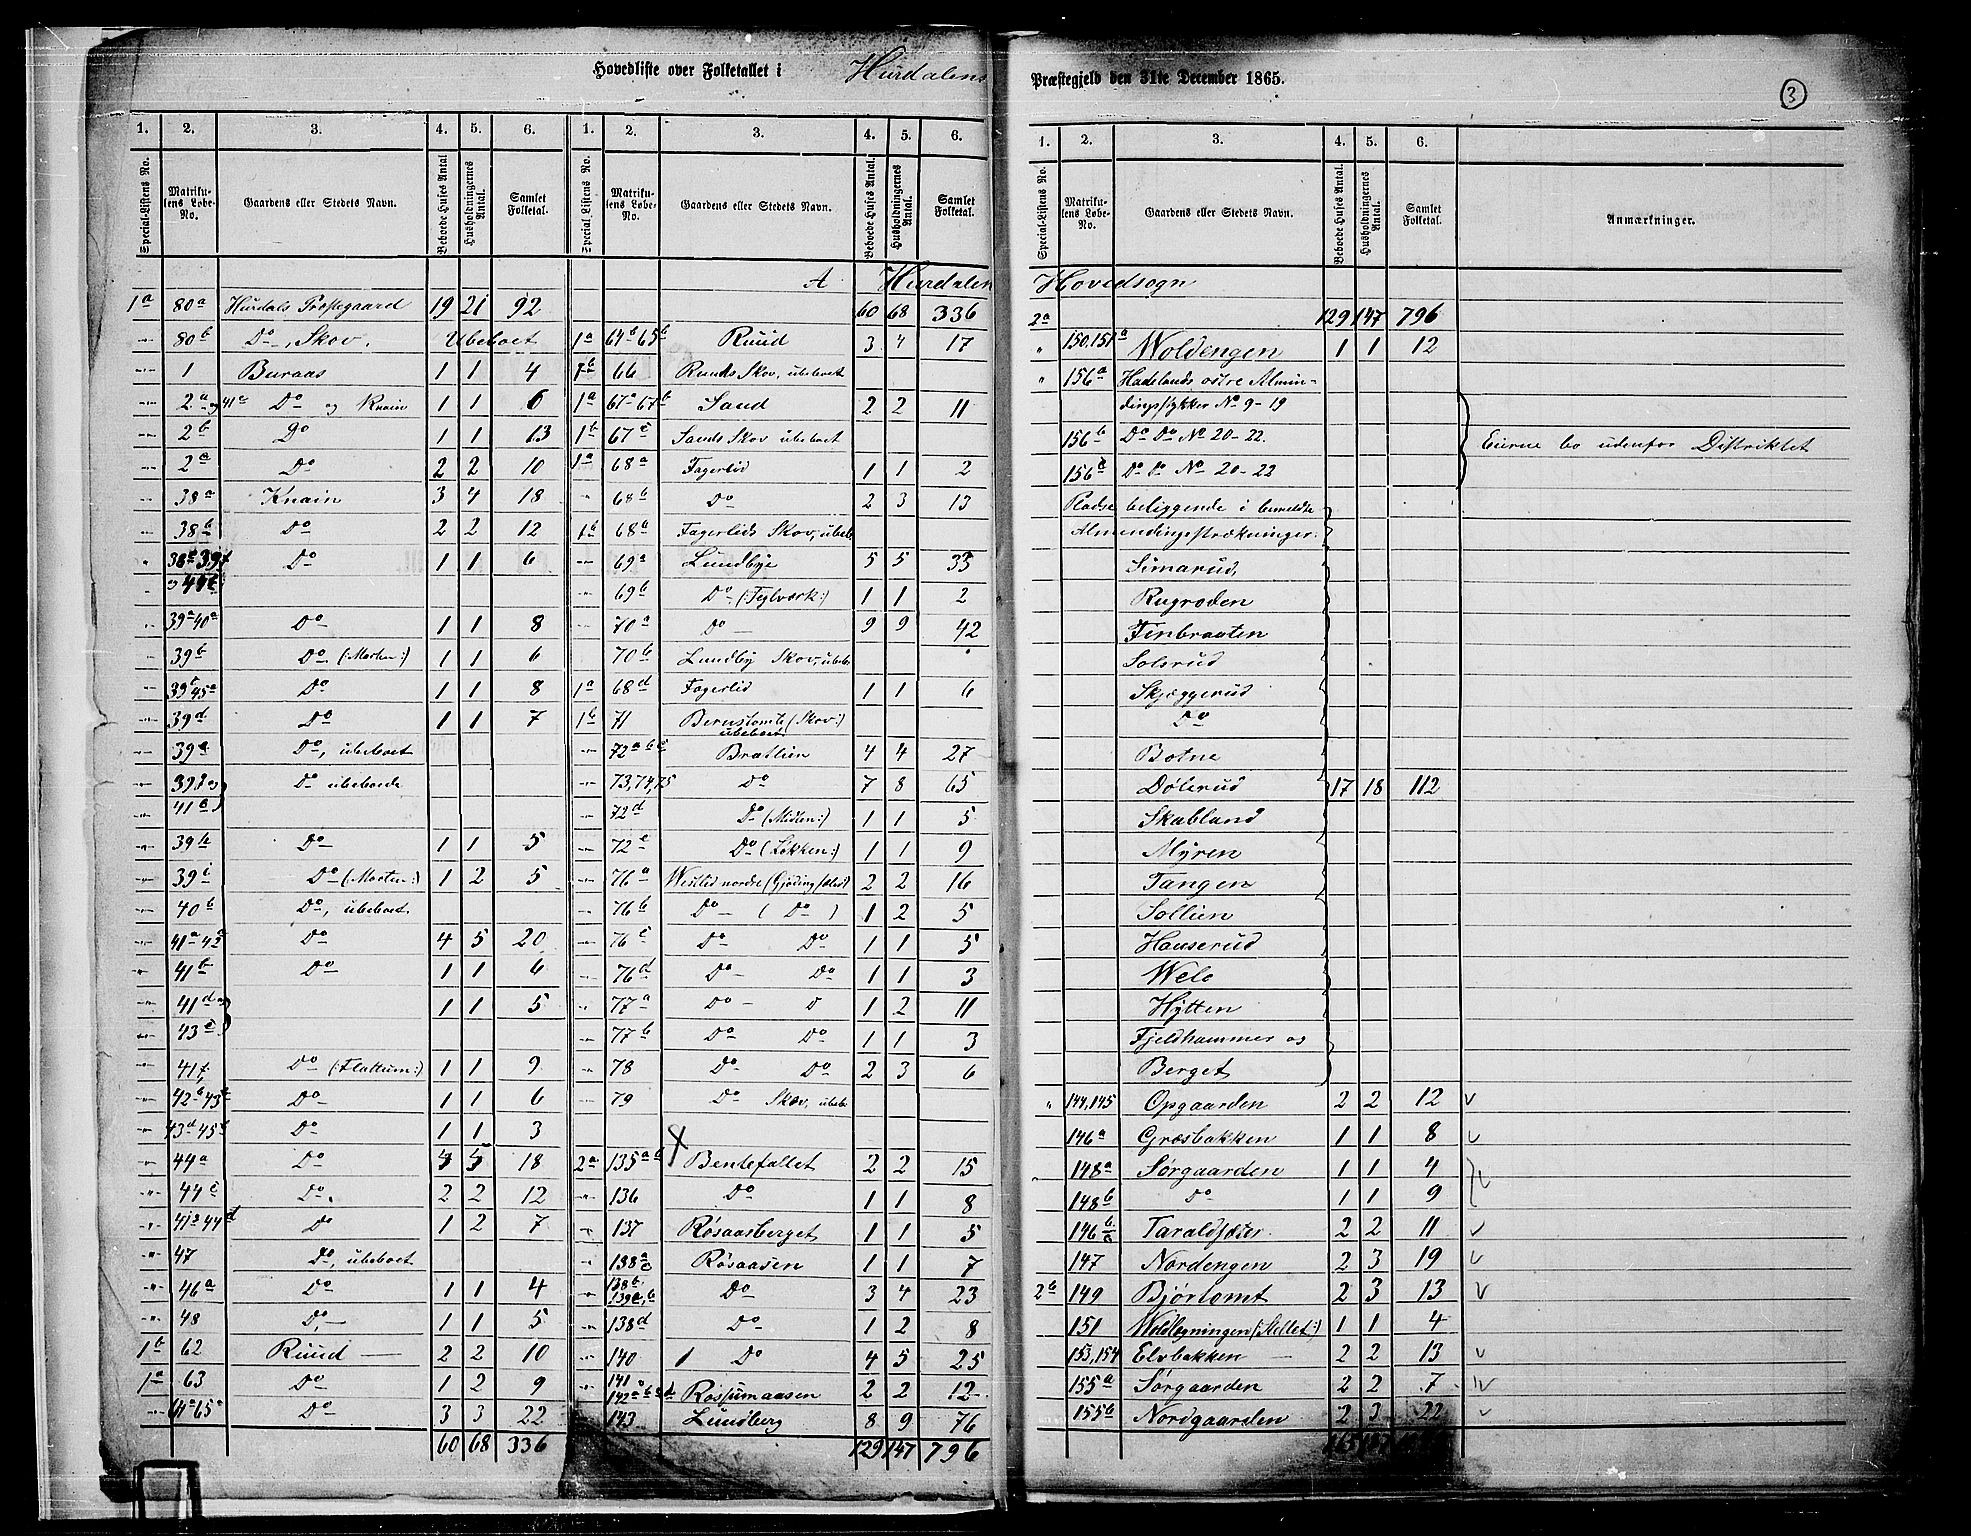 Hovedliste over Folketallet i Hurdalens Præstegjeld den 31te December 1865.
3
1. 2. 3. 4. 5. 6. 1. 2. 3. 4. 5. 6.
Special-Listens No. Matriku-lens Løbe-No. Gaardens eller Stedets Navn. Beboede Huses Antal Husholdningernes Antal. Samlet Folketal. Special-Listens No. Matriku-lens Løbe-No. Gaardens eller Stedets Navn. Beboede Huses Antal. Husholdningernes Antal. Samlet Folketal.
A Hurdalen
1a 80a Hurdals Præstegaard 19 21 92
80b Do, Skov. Ubeboet
1 Buraas 1 1 4
2a og 41e Do og Knain 1 1 6
2b Do 1 1 13
2a Do 2 2 10
38a Knain 3 4 18
38b Do 2 2 12
Do 1 1 6
39a 40a Do 1 1 8
39b Do (: Morten:) 1 1 6
39c 45a Do 1 1 8
39d Do 1 1 7
Do, ubeboet
Do ubeboede
39h Do 1 1 5
39i Do (: Morten:) 1 2 5
40b Do, ubeboet
41a 42a Do 4 5 20
41b Do 1 1 6
41d og 1 1 5
43c
41f Do (: Flattum:) 1 1 9
42b 43b Do 1 1 6
43d 45b Do 1 1 3
44a Do 18
44c Do. 2 2 12
44d Do 1 2 7
47 Do, ubeboet
46a Do 1 1 4
48 Do 1 1 5
1b 62 Ruud 2 2 10
1a 63 Do 1 2 9
64a 65a Do 3 3 22
60 68 336
60 68 336
1a 64b 65b Ruud 3 4 17
1b 66 Ruuds Skov, ubeboet
1a 67a 67b Sand 2 2 11
1b 67c Sands Skov ubeboet
1a 68a Fagerlid 1 1 2
68b Do 2 3 13
1b 68a Fagerlids Skov, ubeb
69a Lundbye 5 5 33
69b Do (: Teglværk:) 1 1 2
70a Do 9 9 42
70b Lundby Skov, ubeb
1a 68d Fagerlid 1 1 6
1b 71 Berustomte (Skov:) ubeboet
72a b c Bratlien 4 4 27
73, 74, 75 Do 7 8 65
72d Do (Midten:) 1 1 5
72e Do (Løkken:) 1 1 9
76a Westlid nordre (Gjøding/sted) 2 2 16
76b Do ( Do ) 1 2 5
76c Do Do 1 1 5
76d Do Do 1 1 3
77a Do D 1 2 11
77b Do Do 1 1 3
78 Do Do 2 3 6
79 Do Skov, ubeb
2a 135a b Bentefallet 2 2 15
136 Do 1 1 8
137 Røsaasberget 1 1 5
138a c Røsaasen 1 1 7
138b 139a,b Do 3 4 23
138d Do 1 2 8
140 Do 4 5 25
141 142a b c d Røssumaasen 2 2 12
143 Lundberg 8 9 76
129 147 796
1. 2. 3. 4. 5. 6.
Special-Listens No. Matriku-lens Løbe-No. Gaardens eller Stedets Navn. Beboede Huses Antal. Husholdningernes Antal. Samlet Folketal. Anmærkninger.
Hovedsogn
2a 129 147 796
" 150, 151a Woldengen 1 1 12
" 156a Hadelands østre Almin-
dingsstykker No 9-19
156b Do Do No 20-22. Eierne bo udenfor Distriktet
156c Do Do No 20-22
Pladse beliggende i bemeldte
Almendingsstrækninger.
Simarud,
Rugroden
Finbraaten
Solsrud
Skjæggerud
Do
Botne
Dølerud 17 18 112
Skabland
Myren
Tangen
Sollien
Hauserud
Welo
Hytten
Fjeldhammer og
Berget
" 144, 145 Opgaarden 2 2 12
146a Græsbakken 1 1 8
148a Sørgaarden 1 1 4
148b Do 1 1 9
146b/c Taraldsæter 2 2 11
147 Nordengen 2 3 19
2b 149 Bjørtomt 2 3 13
151 Woldbygningen (: Stellet:) 1 1 4
153, 154 Elvbakken 2 2 13
155a Sørgaarden 2 2 7
155b Nordgaarden 2 3 22